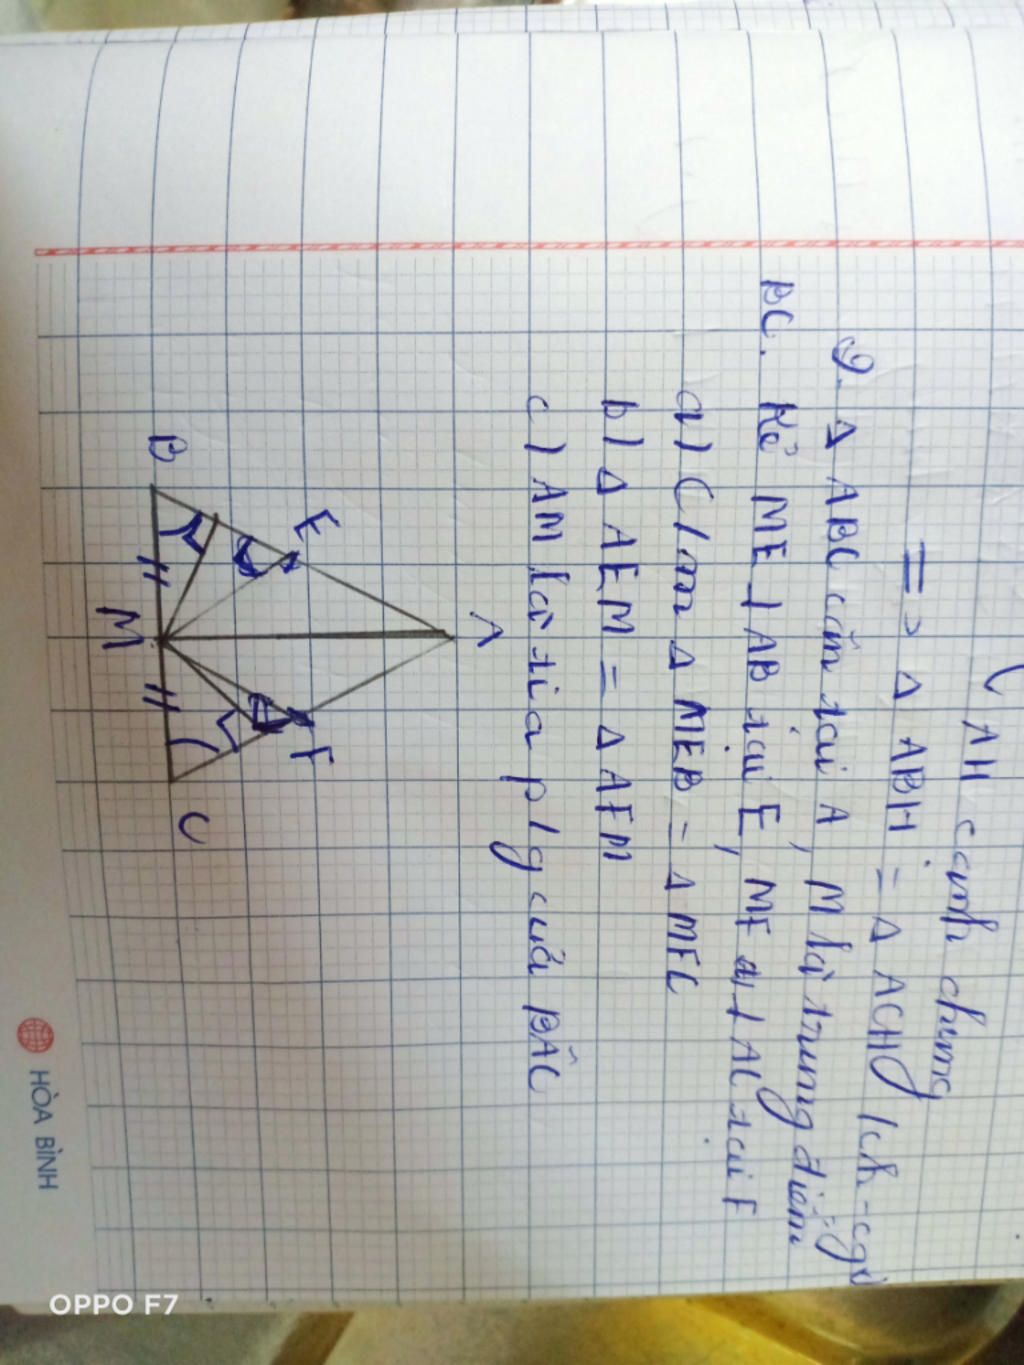 AH cạnh chung
=> Δ ABH = Δ ACH (ch-cgv)
9. Δ ABC cân tại A, M là trung điểm
BC. Kẻ ME ⊥ AB tại E, MF ⊥ AC tại F
a) C/m Δ MEB = Δ MFC
b) Δ AEM = Δ AFM
c) AM là tia p/g của BÂC
A
E
F
B
M
C
HÒA BÌNH
OPPO F7